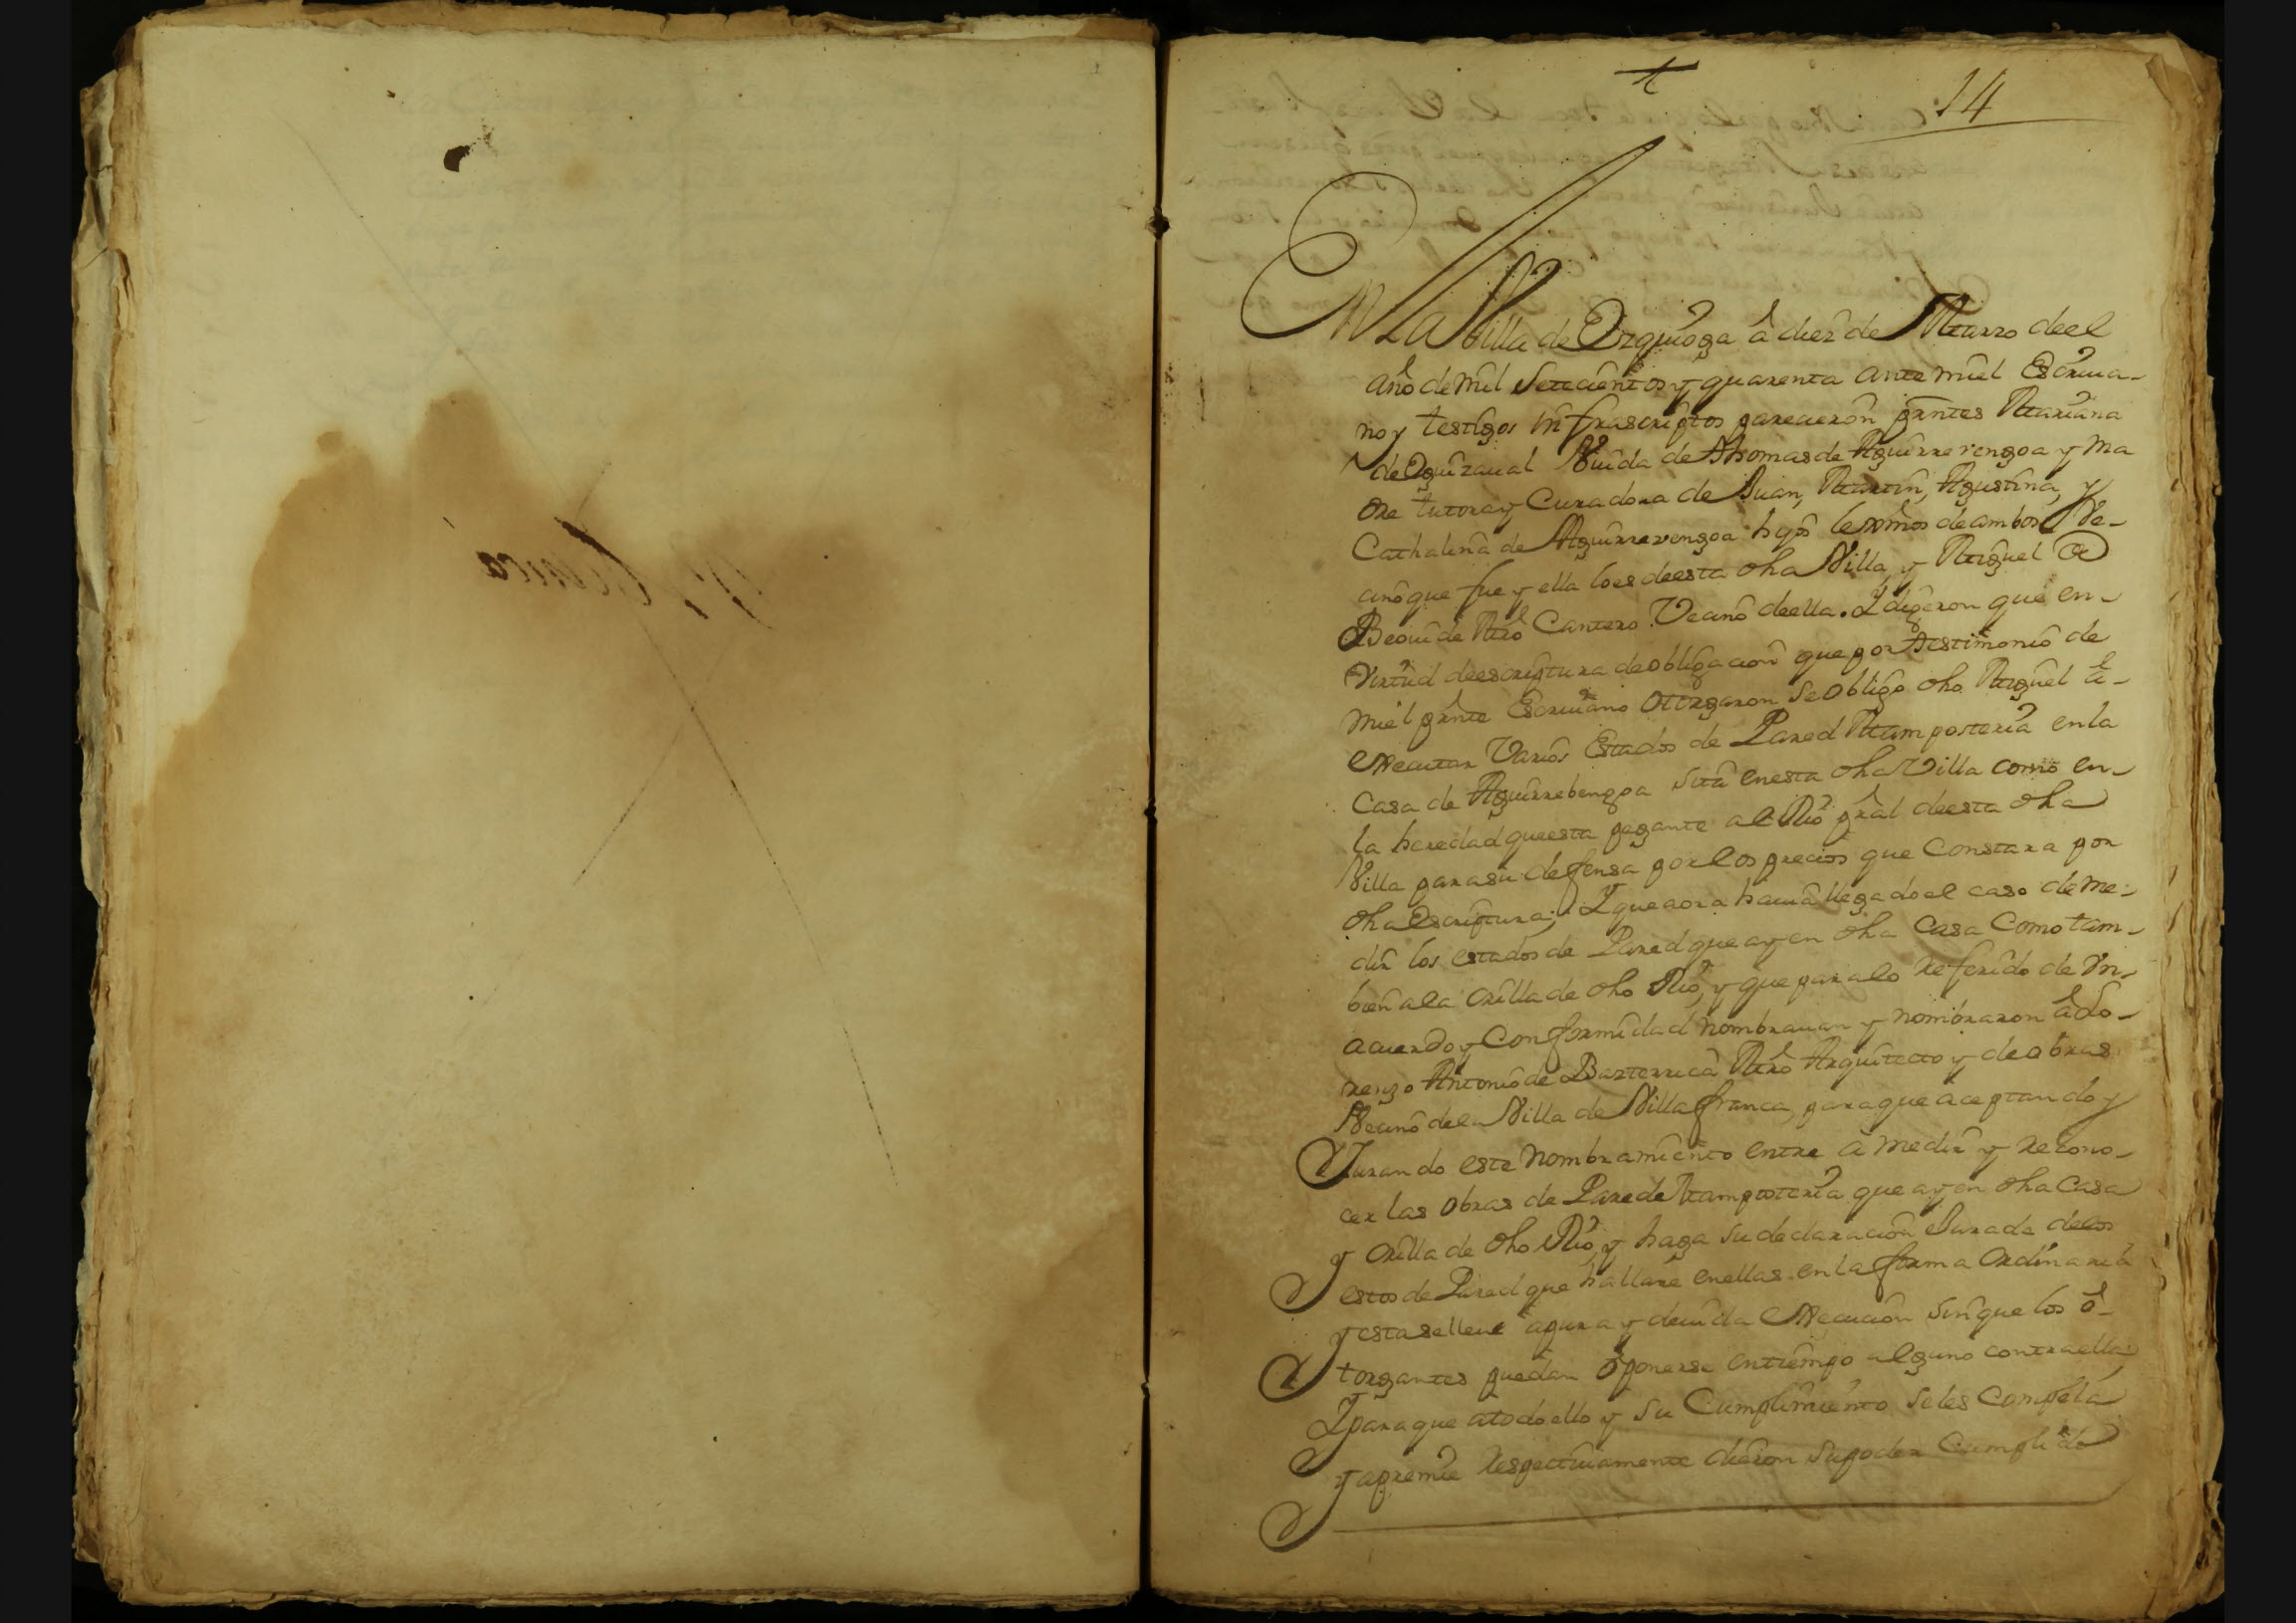 14
En La Villa de Ozquioga â diez de Marzo deel
año de mil Setecientos y quarenta ante miel Escriua-
no y testigos infrascriptos parecieron prntes Mariana
de Oguizaual Viuda de Thomas de Aguirrevengoa y ma
dre tutora y Curadora de Juan, Martin, Agustina, y
Cathalina de Aguirrevengoa hijos lexmos de ambos Ve-
cino que fue y ella lo es deesta dha Villa, y Miguel de
Beouide Mro Cantero Vecino deella. Y digeron que en
Virtud deescriptura de obligacion que por testimonio de
miel prnte Escriuano otorgaron se obligo dho Miguel â
executar Varios Estados de Pared Mamposteria en la
Casa de Aguirrebengoa sita enesta dha Villa como en
la heredad que esta pegante al Rio pral deesta dha
Villa para su defensa por los precios que Constara por
dha Escriptura; Y que aora hauia llegado el caso de me-
dir los estados de Pared que ay en dha Casa Como tam-
bien ala orilla de dho Rio, y que para lo referido de Vn
acuerdo y Conformidad nombrauan y nombraron â Lo-
renzo Antonio de Barterrica Mro Arquitecto y de obras
Vecino dela Villa de Villafranca, para que aceptando y
Jurando este nombramiento entre â medir y recono-
cer las obras de Pared Mamposteria que ay en dha Casa
y orilla de dho Rio, y haga su declaracion Jurada delos
estos de Pared que hallare enellas en la forma ordinaria
y esta selleue â pura y deuida execucion sin que los ô-
torgantes puedan ôponerse en tiempo alguno contra ella
Y para que a todo ello y su Cumplimiento se les Compela
y apremie respectiuamente dieron su poder Cumplido